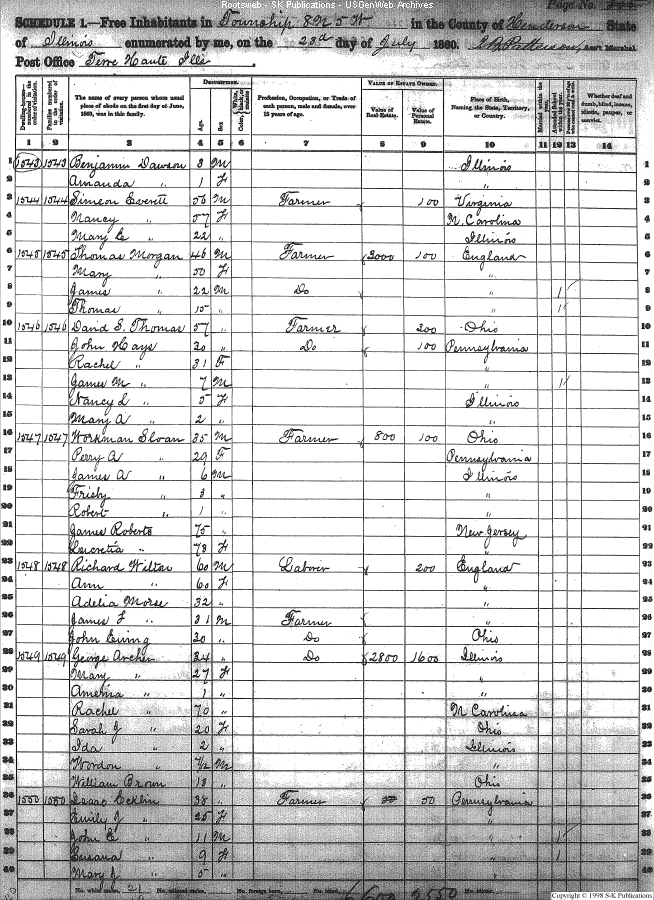 Rootsweb - SK Publications - USGenWeb Archives
Page No.
SCHEDULE 1.—Free Inhabitants in Township 8N 5W in the County of Henderson State
of Illinois enumerated by me, on the 23d day of July 1860. Ass't Marshal.
Post Office Terre Haute Ills
Dwelling-houses— numbered in the order of visitation.
Families numbered in the order of visitation.
The name of every person whose usual place of abode on the first day of June, 1860, was in this family.
Description.
Age.
Sex.
Color, White, black, or mulatto.
Profession, Occupation, or Trade of each person, male and female, over 15 years of age.
Value of Estate Owned.
Value of Real Estate.
Value of Personal Estate.
Place of Birth, Naming the State, Territory, or Country.
Married within the year.
Attended School within the year.
Whether deaf and dumb, blind, insane, idiotic, pauper, or convict.
1 2 3 4 5 6 7 8 9 10 11 12 13 14
1 1543 1543 Benjamin Dawson 3 M Illinois 1
2 Amanda " 1 F " 2
3 1544 1544 Simeon Everett 56 M Farmer 100 Virginia 3
4 Nancy " 57 F N. Carolina 4
5 Mary E " 22 " Illinois 5
6 1545 1545 Thomas Morgan 46 M Farmer 3000 100 England 6
7 Mary " 50 F " 7
8 James " 22 M Do " 1 8
9 Thomas " 15 " " 1 9
10 1546 1546 David S. Thomas 57 " Farmer 200 Ohio 10
11 John Hays 30 " Do 100 Pennsylvania 11
12 Rachel " 31 F " 12
13 James M " 7 M " 1 13
14 Nancy L " 5 F Illinois 14
15 Mary A " 2 " " 15
16 1547 1547 Workman Sloan 35 M Farmer 800 100 Ohio 16
17 Perry A " 29 F Pennsylvania 17
18 James A " 6 M Illinois 18
19 Frisby " 3 " " 19
20 Robert " 1 " " 20
21 James Roberts 75 " New Jersey 21
22 Lucretia " 78 F " 22
23 1548 1548 Richard Wilter 60 M Laborer 200 England 23
24 Ann " 60 F " 24
25 Adelia Morse 32 " " 25
26 James F " 31 M Farmer " 26
27 John Ewing 30 " Do Ohio 27
28 1549 1549 George Archer 34 " Do 2800 1600 Illinois 28
29 Mary " 27 F " 29
30 Amelia " 1 " " 30
31 Rachel " 70 " N Carolina 31
32 Sarah J " 20 F Ohio 32
33 Ida " 2 " Illinois 33
34 Wordon " 7/12 M " 34
35 William Brown 18 " Ohio 35
36 1550 1550 Isaac Ecklin 38 " Farmer 50 Pennsylvania 36
37 Emily J " 25 F " 37
38 John E " 11 M " 1 38
39 Susana " 9 F " 1 39
40 Mary J " 5 " " 40
No. white males, 21 No. colored males, No. foreign born, No. blind,
Copyright © 1998 S-K Publications